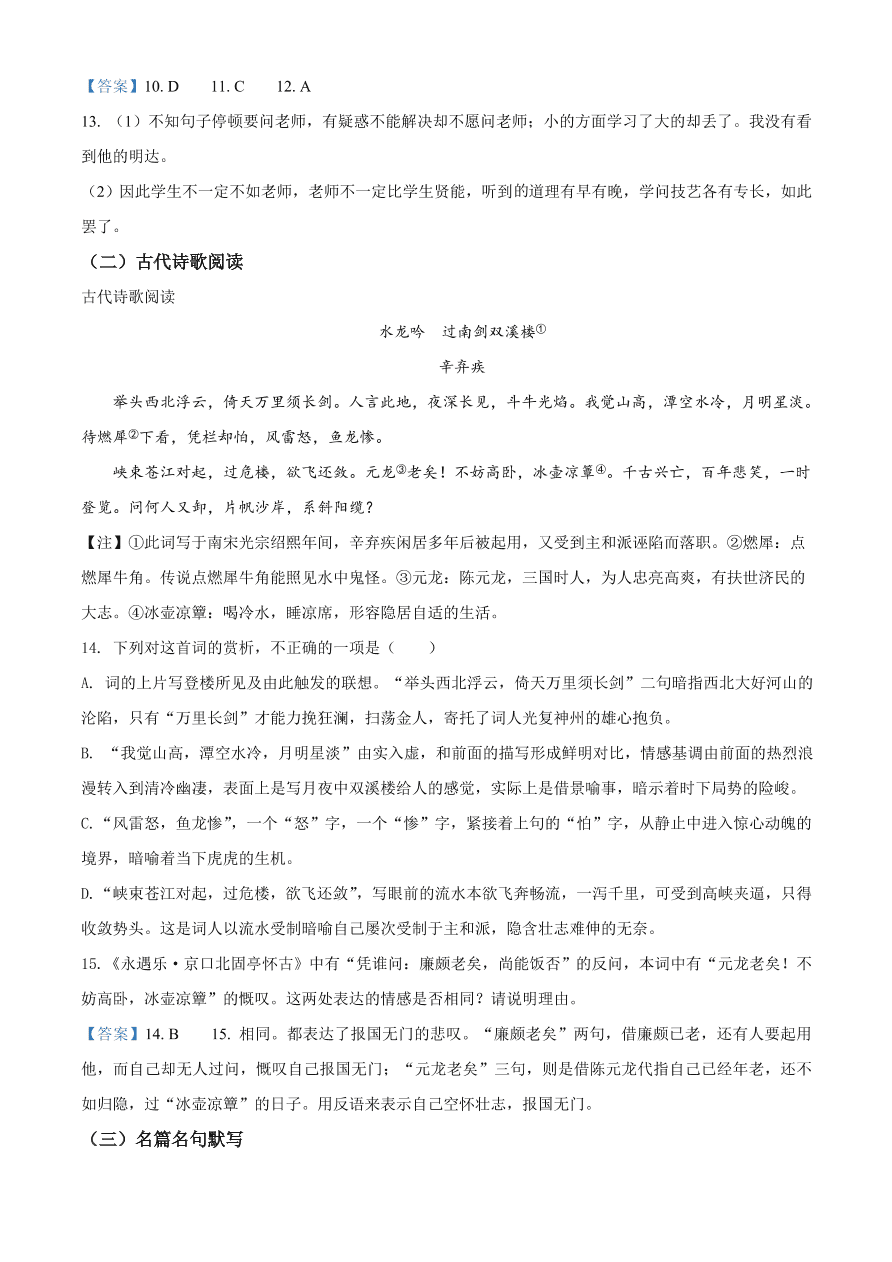 【答案】10. D  11. C  12. A
13. （1）不知句子停顿要问老师，有疑惑不能解决却不愿问老师；小的方面学习了大的却丢了。我没有看
到他的明达。
（2）因此学生不一定不如老师，老师不一定比学生贤能，听到的道理有早有晚，学问技艺各有专长，如此
罢了。
（二）古代诗歌阅读
古代诗歌阅读
水龙吟 过南剑双溪楼①
辛弃疾
举头西北浮云，倚天万里须长剑。人言此地，夜深长见，斗牛光焰。我觉山高，潭空水冷，月明星淡。
待燃犀②下看，凭栏却怕，风雷怒，鱼龙惨。
峡束苍江对起，过危楼，欲飞还敛。元龙③老矣！不妨高卧，冰壶凉簟④。千古兴亡，百年悲笑，一时
登览。问何人又卸，片帆沙岸，系斜阳缆？
【注】①此词写于南宋光宗绍熙年间，辛弃疾闲居多年后被起用，又受到主和派诬陷而落职。②燃犀：点
燃犀牛角。传说点燃犀牛角能照见水中鬼怪。③元龙：陈元龙，三国时人，为人忠亮高爽，有扶世济民的
大志。④冰壶凉簟：喝冷水，睡凉席，形容隐居自适的生活。
14. 下列对这首词的赏析，不正确的一项是（  ）
A. 词的上片写登楼所见及由此触发的联想。“举头西北浮云，倚天万里须长剑”二句暗指西北大好河山的
沦陷，只有“万里长剑”才能力挽狂澜，扫荡金人，寄托了词人光复神州的雄心抱负。
B. “我觉山高，潭空水冷，月明星淡”由实入虚，和前面的描写形成鲜明对比，情感基调由前面的热烈浪
漫转入到清冷幽凄，表面上是写月夜中双溪楼给人的感觉，实际上是借景喻事，暗示着时下局势的险峻。
C. “风雷怒，鱼龙惨”，一个“怒”字，一个“惨”字，紧接着上句的“怕”字，从静止中进入惊心动魄的
境界，暗喻着当下虎虎的生机。
D. “峡束苍江对起，过危楼，欲飞还敛”，写眼前的流水本欲飞奔畅流，一泻千里，可受到高峡夹逼，只得
收敛势头。这是词人以流水受制暗喻自己屡次受制于主和派，隐含壮志难伸的无奈。
15. 《永遇乐·京口北固亭怀古》中有“凭谁问：廉颇老矣，尚能饭否”的反问，本词中有“元龙老矣！不
妨高卧，冰壶凉簟”的慨叹。这两处表达的情感是否相同？请说明理由。
【答案】14. B  15. 相同。都表达了报国无门的悲叹。“廉颇老矣”两句，借廉颇已老，还有人要起用
他，而自己却无人过问，慨叹自己报国无门；“元龙老矣”三句，则是借陈元龙代指自己已经年老，还不
如归隐，过“冰壶凉簟”的日子。用反语来表示自己空怀壮志，报国无门。
（三）名篇名句默写